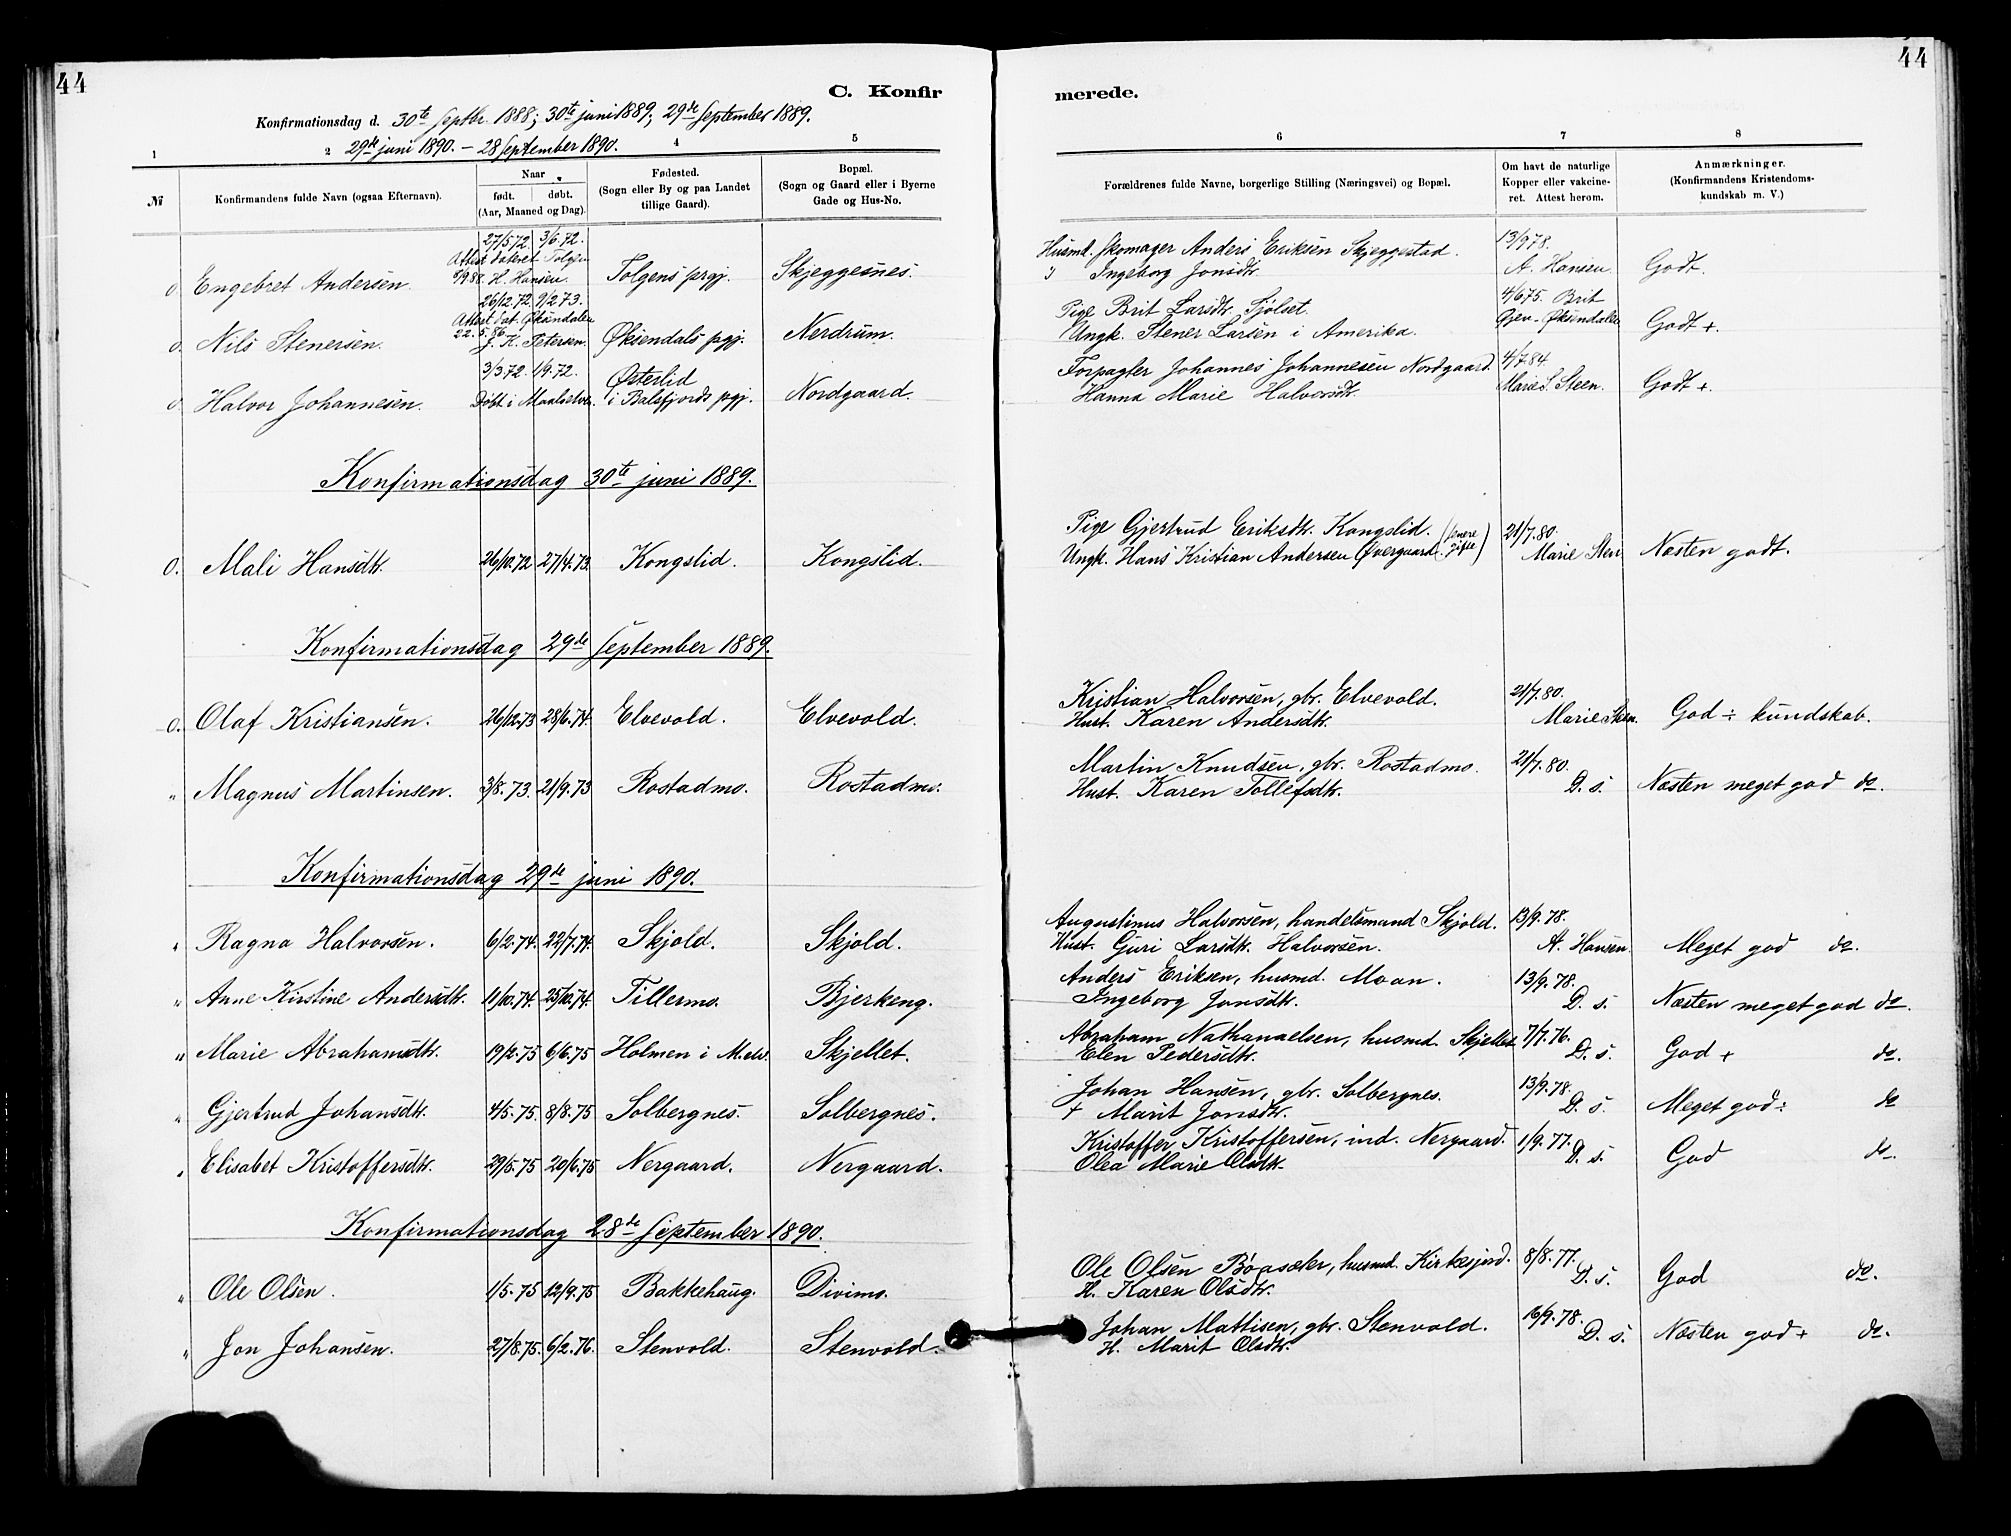 44
44
C. Konfir
merede.
Konfirmationsdag d. 30te Septbr. 1888; 30te juni 1889; 29de September 1889.
29de juni 1890. – 28 September 1890.
1
2
4
5
6
7
8
№
Konfirmandens fulde Navn (ogsaa Efternavn).
Naar
født.
døbt.
(Aar, Maaned og Dag).
Fødested.
(Sogn eller By og paa Landet
tillige Gaard).
Bopæl.
(Sogn og Gaard eller i Byerne
Gade og Hus-No.
Forældrenes fulde Navne, borgerlige Stilling (Næringsvei) og Bopæl.
Om havt de naturlige
Kopper eller vakcine-
ret. Attest herom.
Anmærkninger.
(Konfirmandens Kristendoms-
kundskab m. V.)
27/5 72. 3/6. 72.
Attest dateret Tolgen
H. Hansen.
o Engebret Andersen. Tolgens prgj. Skjeggesnes.
Husmd. Skomager Anders Eriksen Skjeggestad. 13/9 78.
Ingeborg Jonsdtr. A. Hansen Godt.
26/12.72. 9/2 73.
Attest dat. Øksendalen
22.5.86.
J. K. Petersen.
o. Nils Stenersen. Øksendals pgj. Nerdrum.
Pige Brit Larsdtr. Sjölset. 4/6 75. Brit
Ungk. Stener Larsen i Amerika. Gjev- Øksendalen Godt +.
3/3 72. 1/9. 72. Østerlid
o Halvor Johannesen. Døbt i Maalselven. i Balsfjords pgj. Nordgaard.
Forpagter Johannes Johannesen Nordgaard. 4/7 84.
Hanna Marie Halvorsdtr. Marie S. Steen. Godt +.
Konfirmationsdag 30te juni 1889.
O. Mali Hansdtr. 26/10.72 27/4.73 Kongslid. Kongslid.
Pige Gjertrud Eriksdtr. Kongslid. (senere 21/7.80.
Ungk. Hans Kristian Andersen Øvergaard. gifte) Marie Sten Næsten godt.
Konfirmationsdag 29de September 1889.
O. Olaf Kristiansen. 26/12.73 28/6.74. Elvevold. Elvevold.
Kristian Halvorsen, gbr. Elvevold. 21/7.80.
Hust. Karen Andersdtr. Marie Steen. God ÷ kundskab.
" Magnus Martinsen. 3/8.73. 21/9.73 Rostadmo. Rostadmo.
Martin Knudsen, gbr. Rostadmo. 21/7.80.
Hust. Karen Tollefsdtr. D. s. Næsten meget god do.
Konfirmationsdag 29de juni 1890.
" Ragna Halvorsen. 6/2.74. 22/7.74. Skjold. Skjold.
Augustinus Halvorsen, handelsmand Skjold. 13/9.78.
Hust. Guri Larsdtr. Halvorsen. A. Hansen. Meget god do.
" Anne Kirstine Andersdtr. 11/10.74. 25/10.74. Tillermo. Bjerkeng.
Anders Eriksen, husmd. Moan. 13/9.78.
Ingeborg Jonsdtr. D. s. Næsten meget god do.
" Marie Abrahamsdtr. 19/2.75 6/6.75 Holmen i M.elv. Skjellet.
Abraham Nathanaelsen, husmd. Skjellet 7/7.76.
Elen Pedersdtr. D. s. God + do.
" Gjertrud Johansdtr. 4/5.75. 8/8.75 Solbergnes. Solbergnes.
Johan Hansen, gbr. Solbergnes. 13/9.78.
+ Marit Jonsdtr. D. s. Meget god ÷ do
" Elisabet Kristoffersdtr. 29/5.75 20/6.75 Nergaard. Nergaard.
Kristoffer Kristoffersen, ind. Nergaard. 1/9.77.
Olea Marie Olsdtr. D. s. God do.
Konfirmationsdag 28de September 1890.
" Ole Olsen. 1/5.75 12/9.75 Bakkehaug. Divimo.
Ole Olsen husmd. Kirkesjord. 8/8.77.
H. Karen Olsdtr. D. s. God do.
" Jon Johansen. 27/8.75. 6/2.76. Stenvold. Stenvold.
Johan Mattisen, gbr. Stenvold. 16/9.78.
H. Marit Olsdtr. D. s. Næsten god + do.